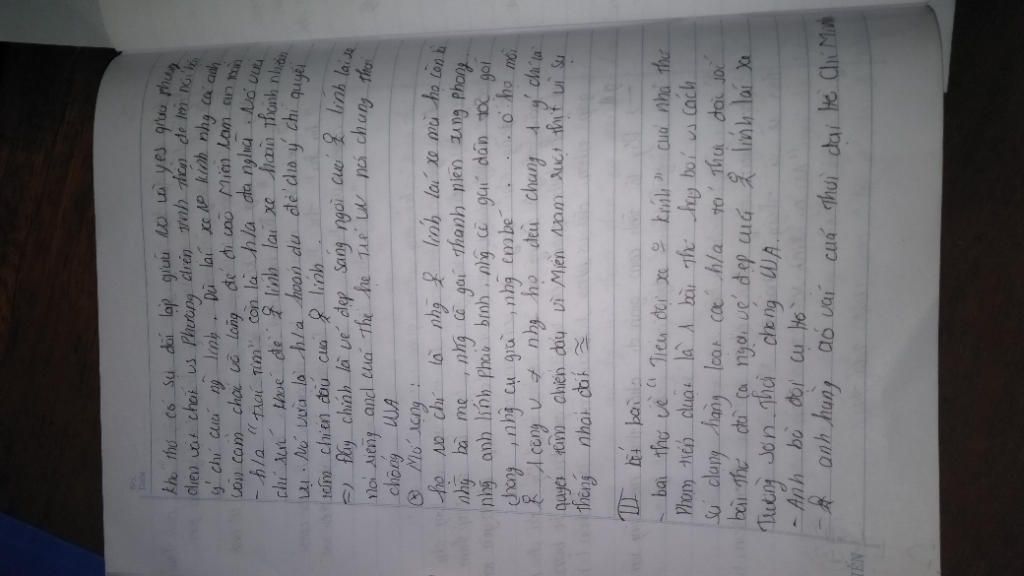 khổ thơ có sự đối lập giữa ko và yes giữa phương
diện vật chất vs Phương diện tinh thần để làm nổi bật
ý chí của ng lính. Dù lái xe ko kính nhg các anh
vẫn cầm chắc vô lăng để đi vào miền Nam an toàn
- h/a "trái tim" còn là h/a đa nghĩa. Nó vừa
chỉ sức khoẻ để lính lái xe hoàn thành nhiệm
vụ. Nó vừa là h/a hoán dụ để chỉ ý chí quyết
tâm chiến đấu của lính.
=> Đây chính là vẻ đẹp sáng ngời của lính lái xe
nói riêng and của thế hệ trẻ VN nói chung thời
chống Mĩ
* Mở rộng:
họ ko chỉ là nhg lính lái xe mà họ còn là
nhg bà mẹ, nhg cô gái thanh niên xung phong
nhg anh lính pháo binh, nhg cô gái dân tộc gùi
hàng, nhg cụ già, nhg em bé ... ở họ mỗi
1 công v ≠ nhg họ đều chung 1 ý chí là
quyết tâm chiến đấu vì Miền Nam ruột thịt vì sự
thống nhất đất
III Kết bài
- bài thơ về "Tiểu đội xe kính" của nhà thơ
Phạm tiến duật là 1 bài thơ hay bởi vs cách
sử dụng hàng loạt các h/a tả thực, đối lập
bài thơ đã ca ngợi vẻ đẹp của lính lái xa
Trường Sơn thời chống Mĩ
- Anh bộ đội cụ Hồ
- anh hùng áo vải của Thời đại Hồ Chí Minh